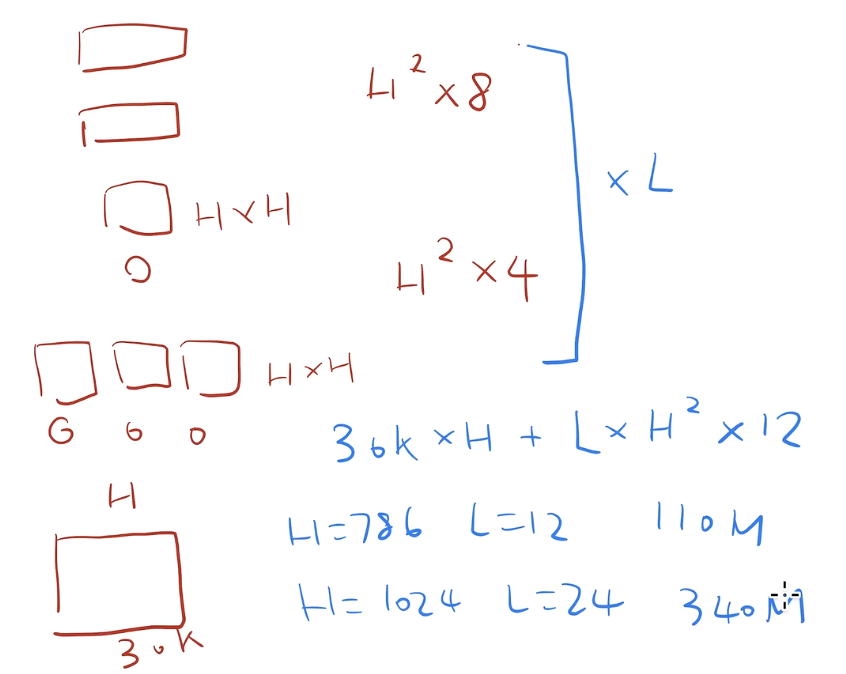 H² × 8
× L
H × H
O
H² × 4
H × H
G 6 O
30k × H + L × H² × 12
H
H=786 L=12 110M
H=1024 L=24 340M
30K